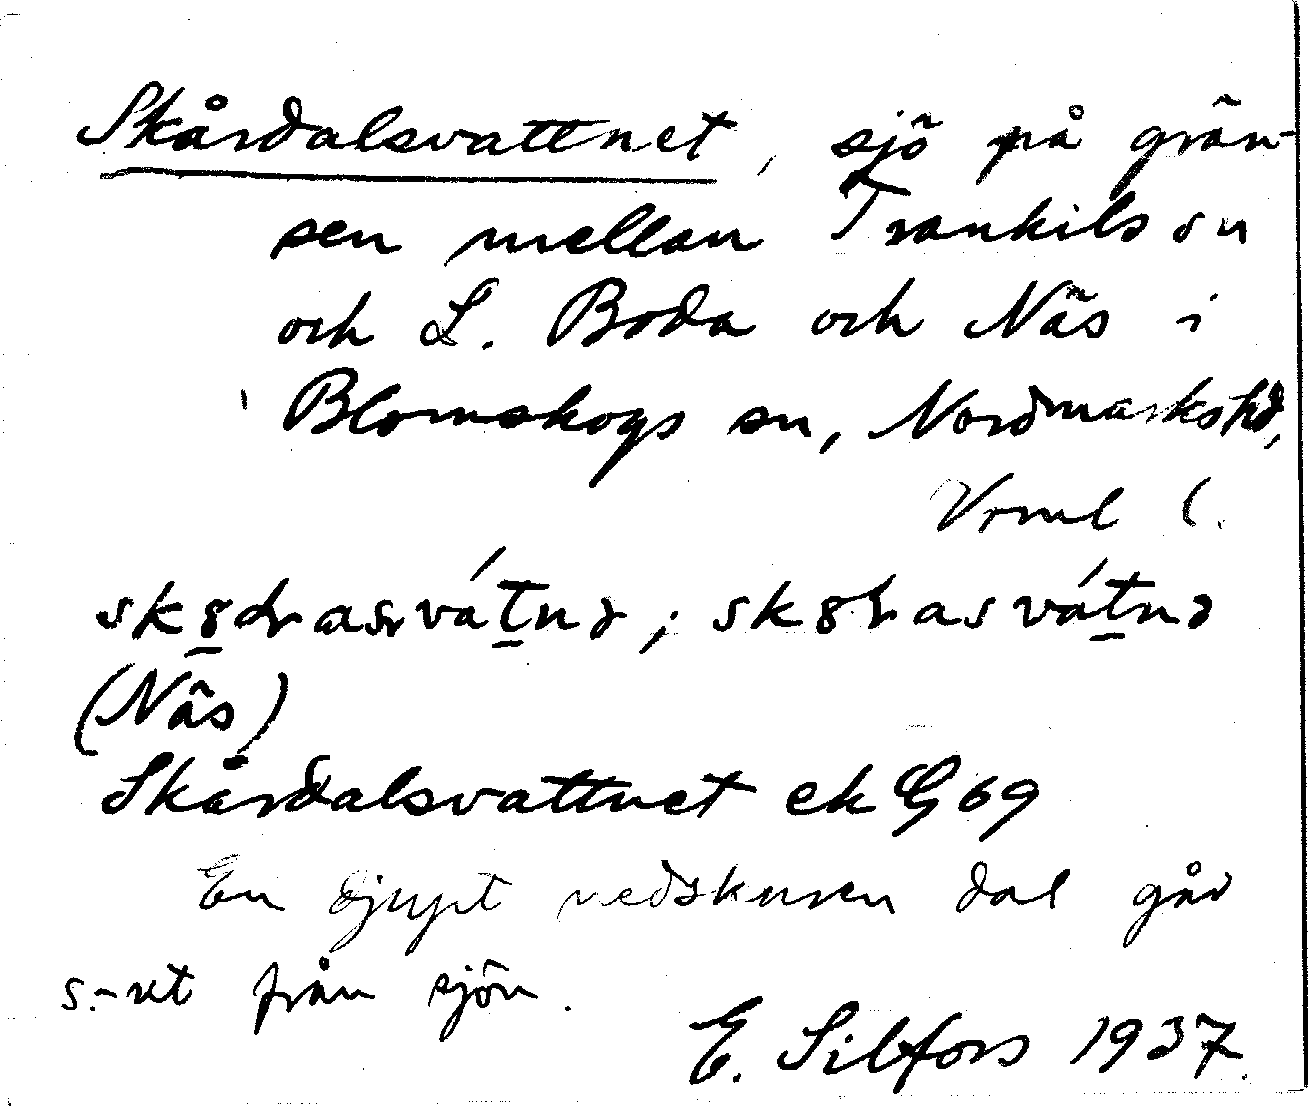 Skårdalsvattnet, sjö på grän-
sen mellan Trankils sn
och L. Boda och Näs i
Blomskogs sn, Nordmarks hd,
Vrml
(Näs)
Skårdalsvattnet ek G 69
En djupt nedskuren dal går
s.-ut från sjön.
E. Silfors 1937.